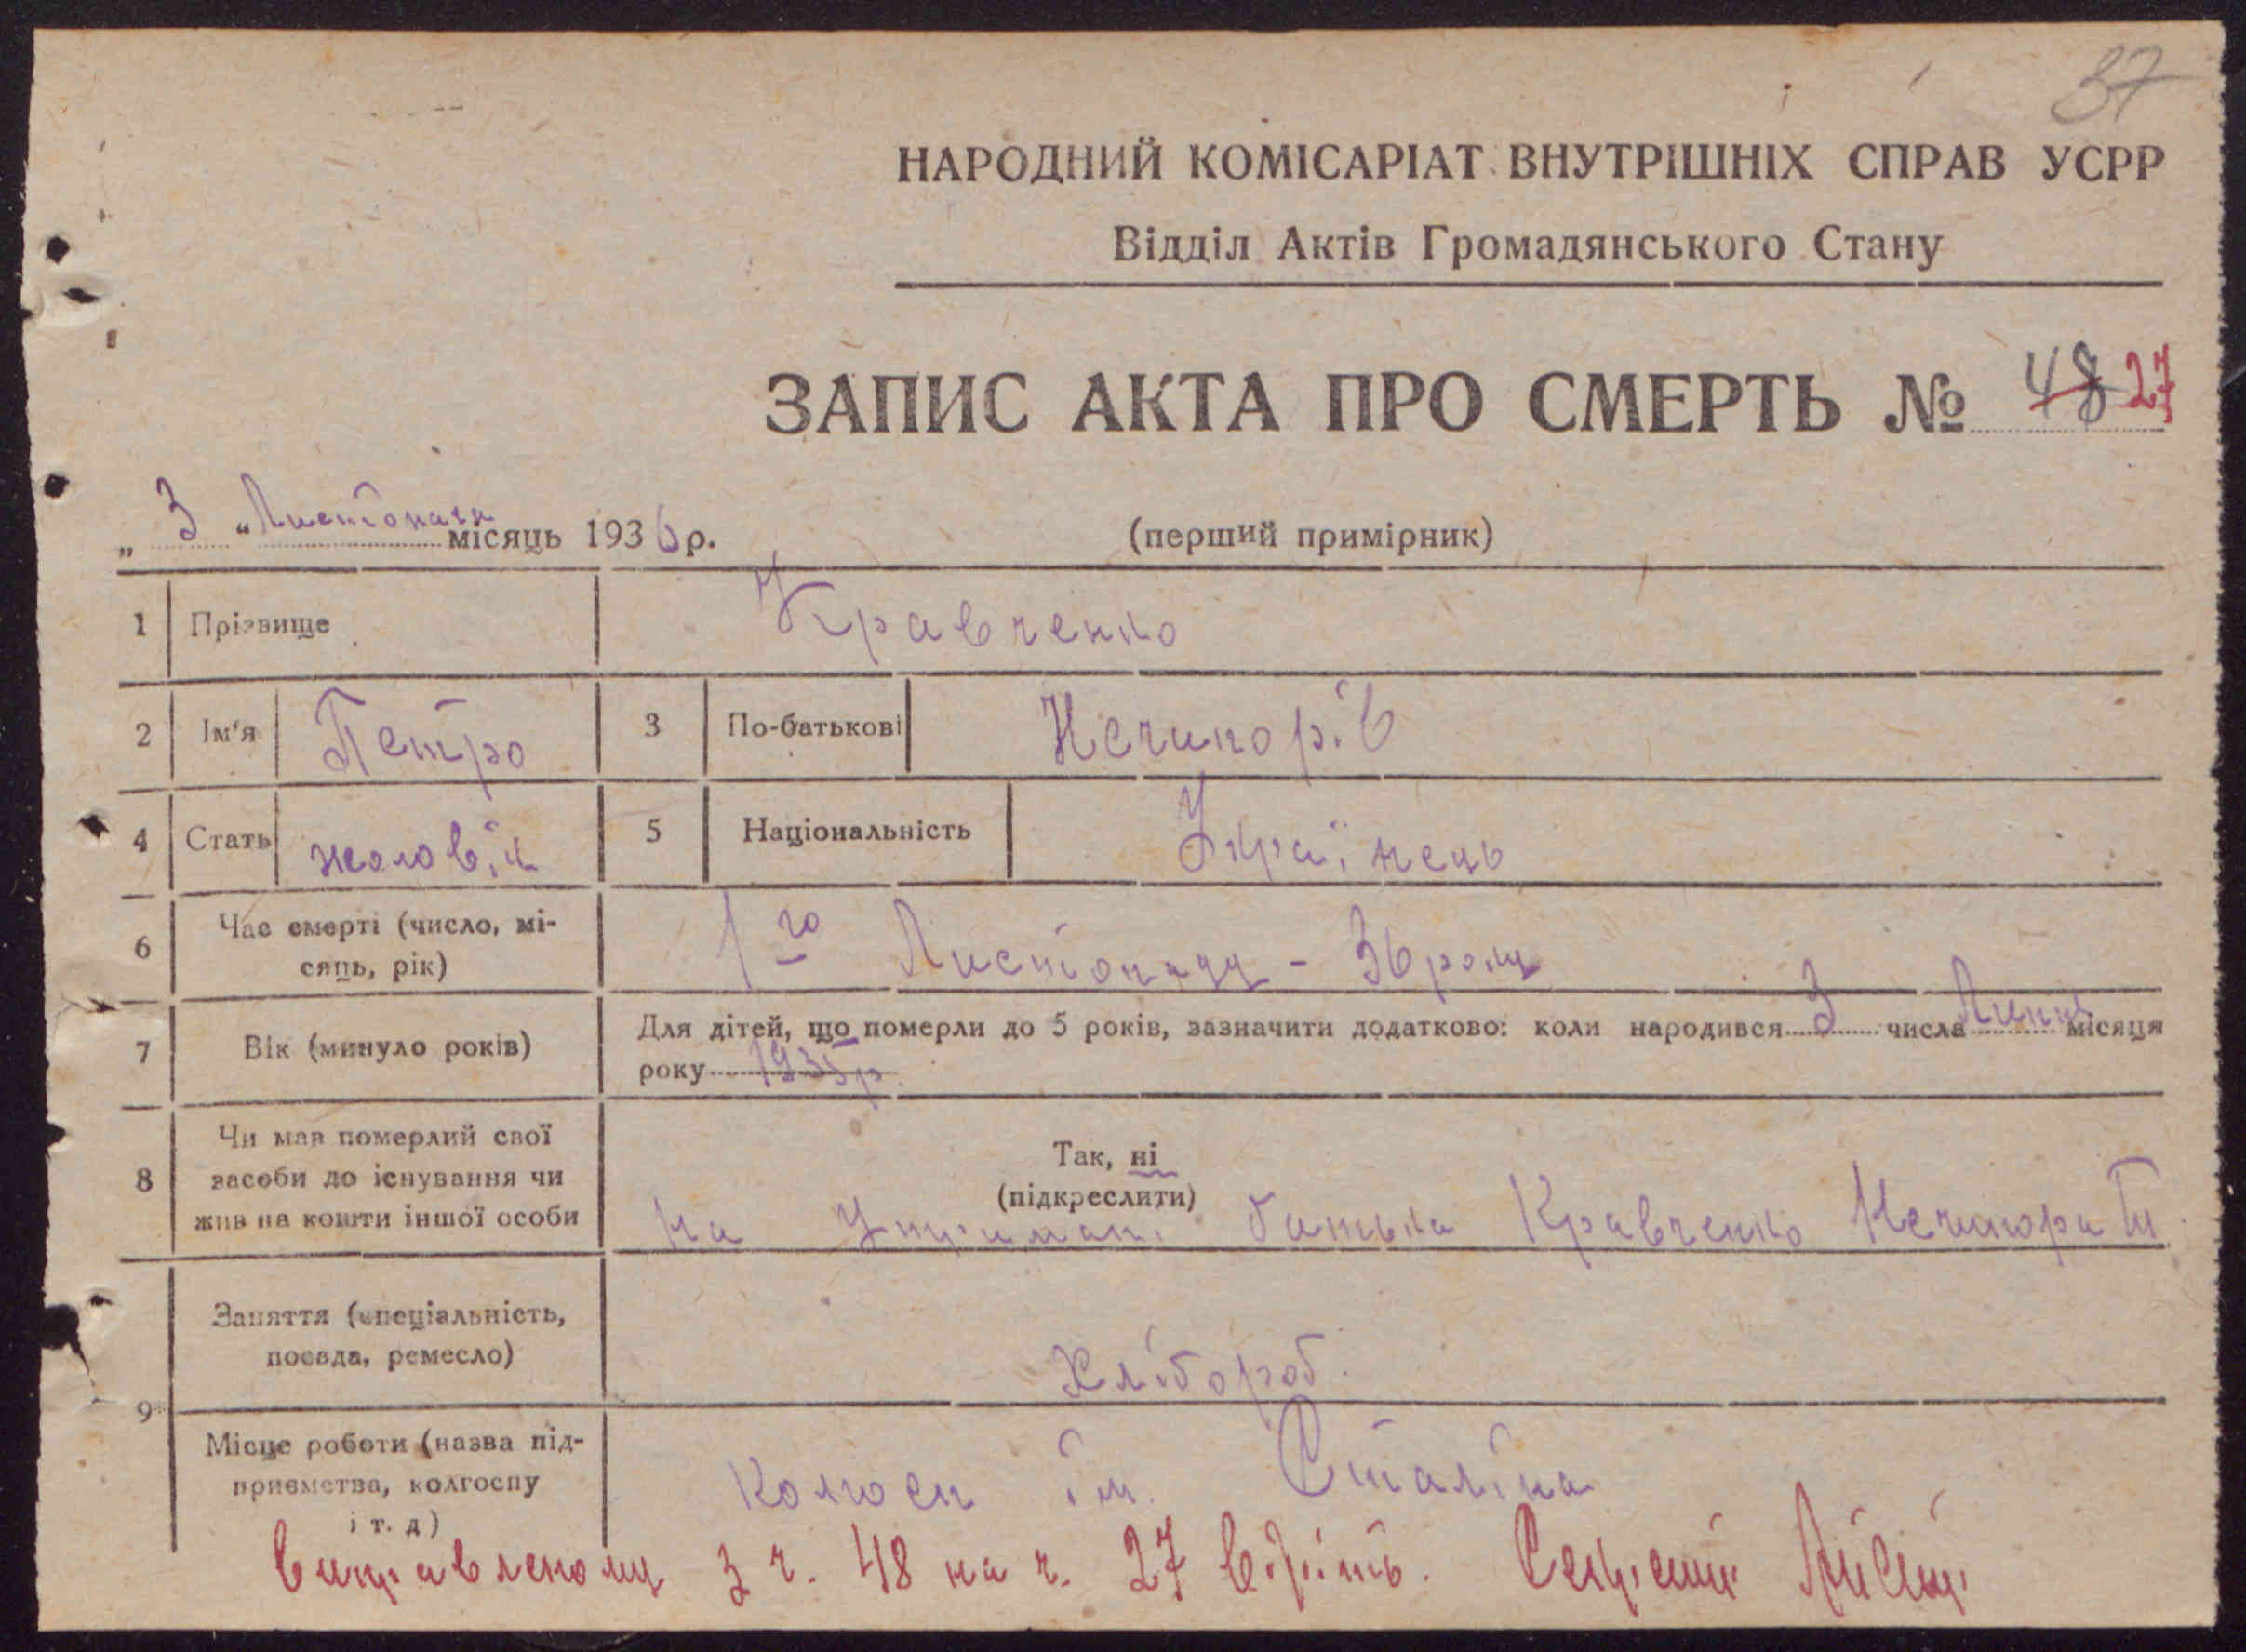 37
НАРОДНИЙ КОМІСАРІАТ ВНУТРІШНІХ СПРАВ УСРР
Відділ Актів Громадянського Стану
ЗАПИС АКТА ПРО СМЕРТЬ № 48 27
„ 3 “ Листопада місяць 1936 р.
(перший примірник)
1 Прізвище Кравченко
2 Ім‘я Петро 3 По-батькові Нечипорів
4 Стать чоловік 5 Національність Українець
6 Час смерті (число, мі-
сяць, рік) 1го Листопада - 36 року
7 Вік (минуло років) Для дітей, що померли до 5 років, зазначити додатково: коли народився 3 числа Липня місяця
року 1935р.
8 Чи мав померлий свої
засоби до існування чи
жив на кошти іншої особи
Так, ні
(підкреслити)
на утримані батька Кравченко Нечипора
9 Заняття (спеціальність,
посада, ремесло) Хлібороб.
Місце роботи (назва під-
приємства, колгоспу
і т. д) Колгосп ім. Сталіна
Виправленому з ч. 48 на ч. 27 вірить.